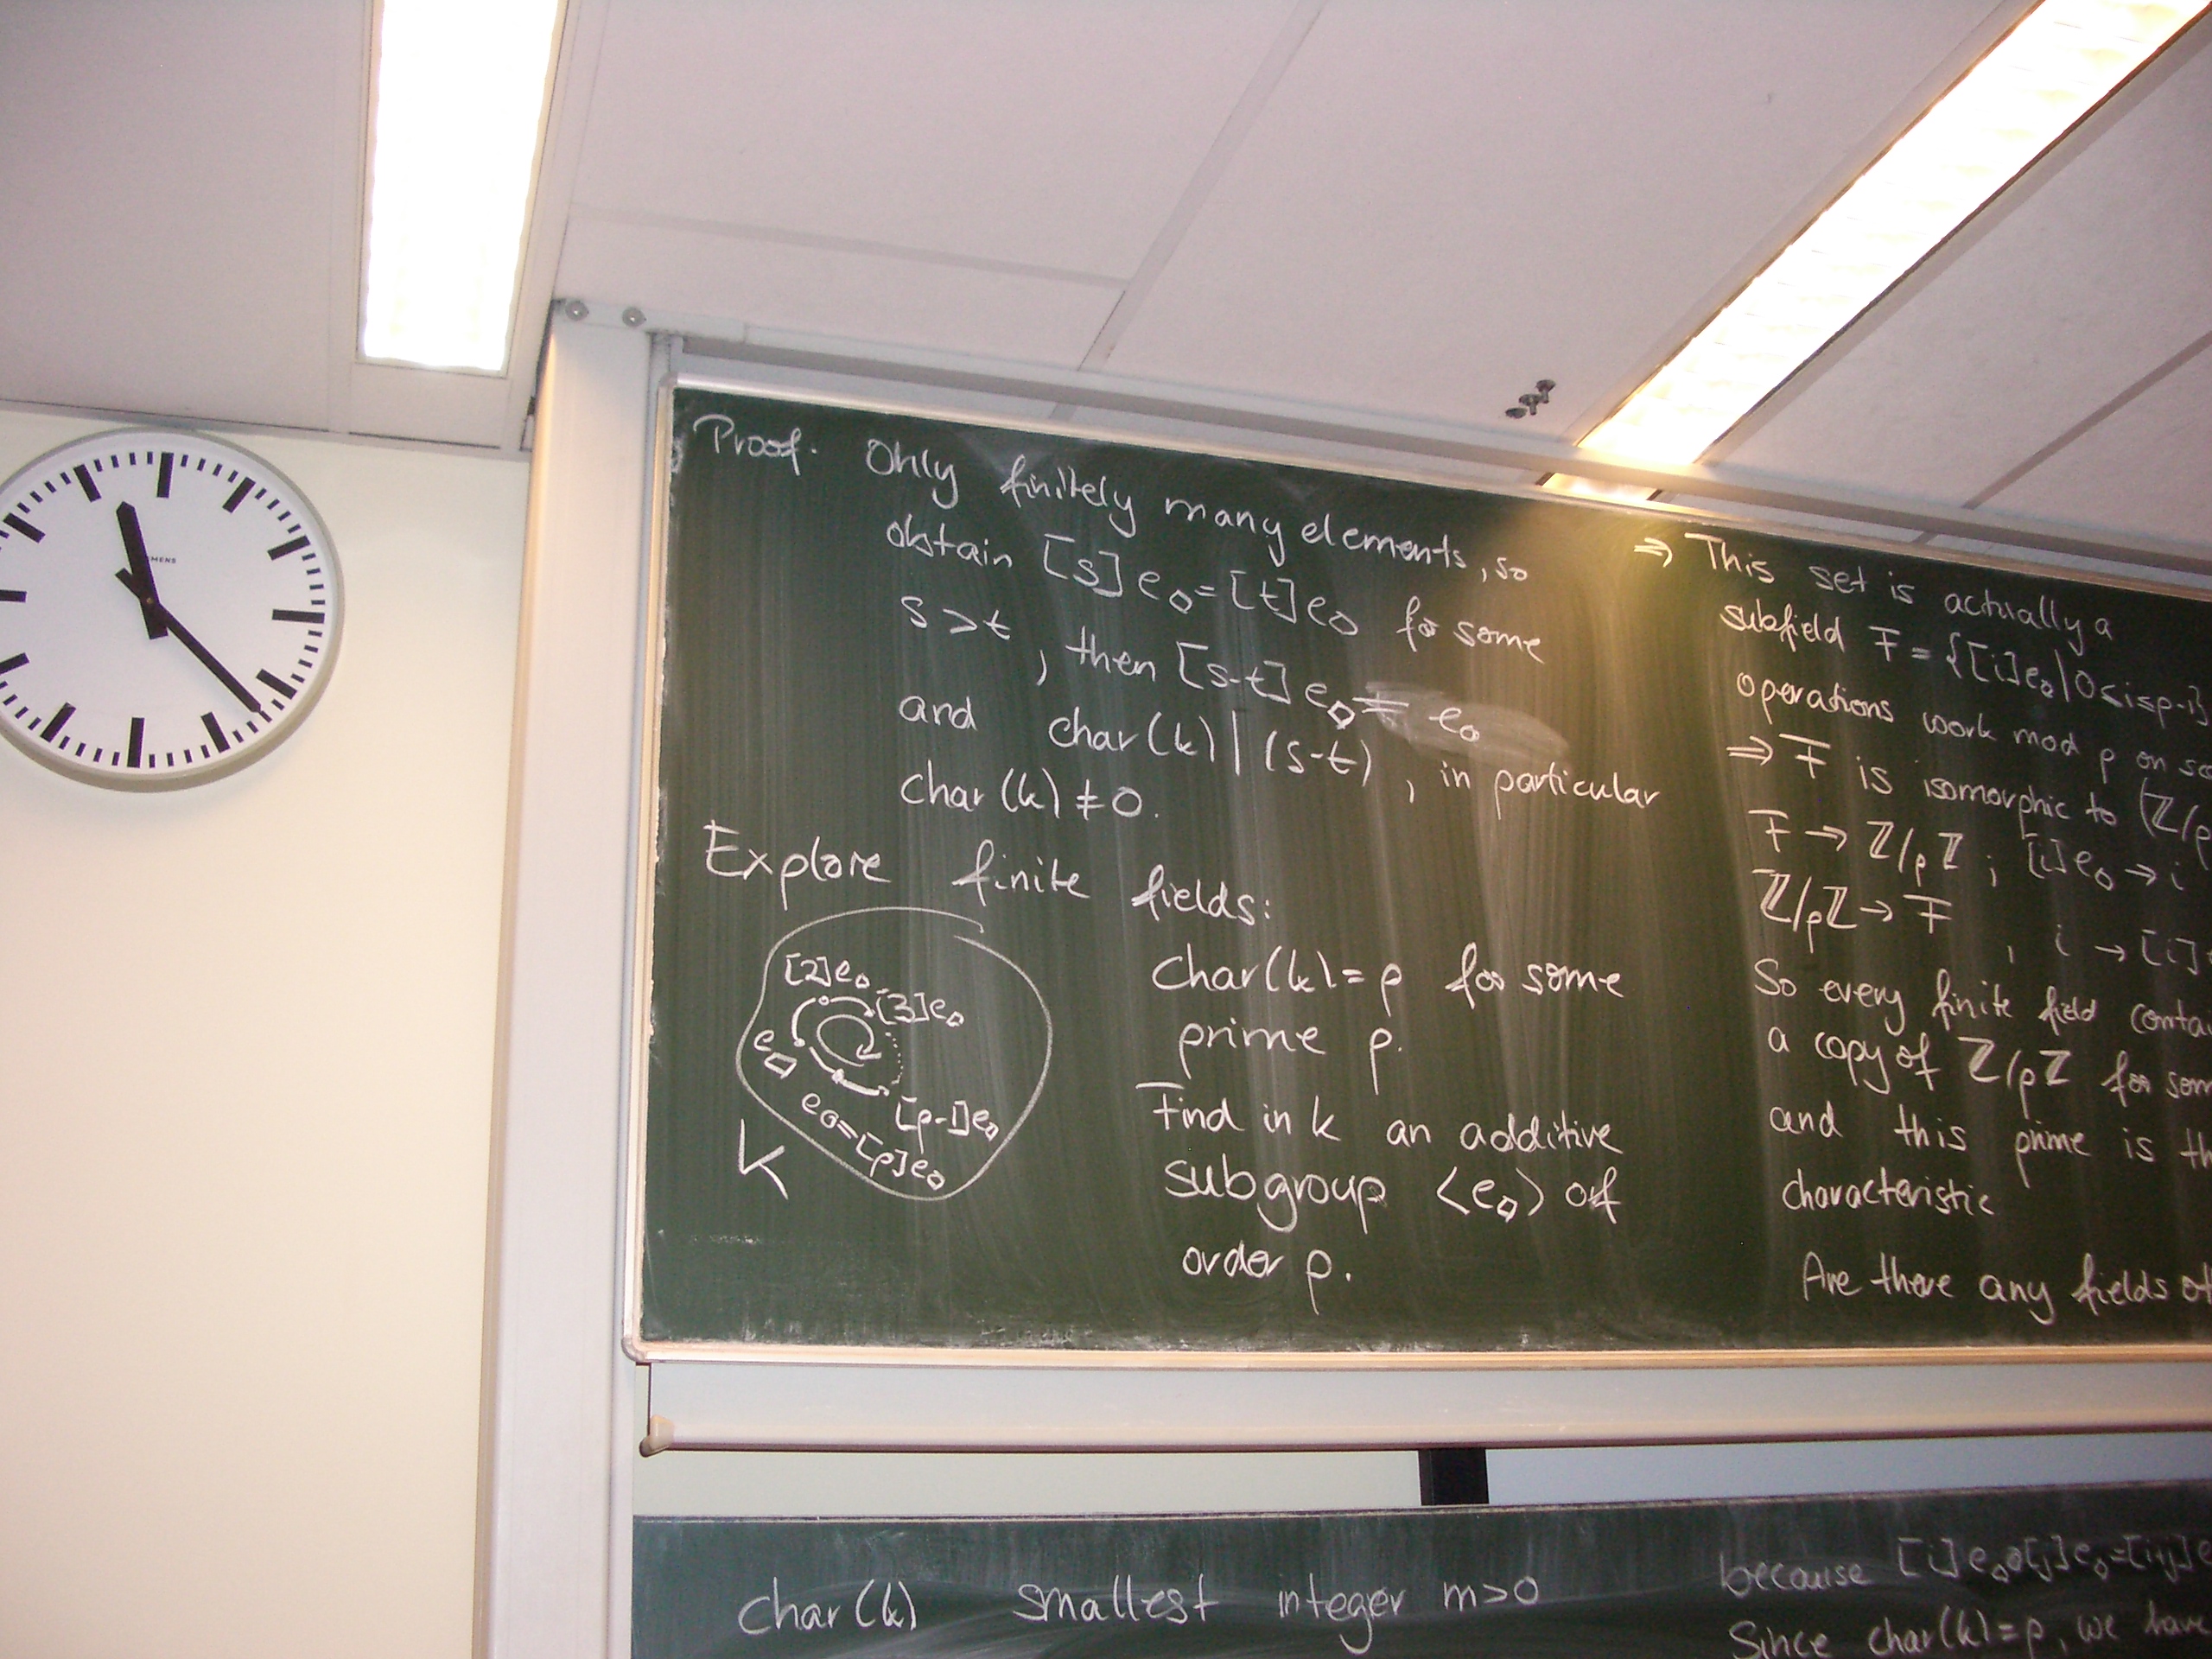 Proof. Only finitely many elements, so
obtain [s]e◇=[t]e◇ for some
s>t, then [s-t]e◇=e◇
and char(k)|(s-t), in particular
char(k)≠0.
Explore finite fields:
[2]e◇
[3]e◇
e◇
[p-1]e◇
e◇=[p]e◇
K
char(k)=p for some
prime p.
Find in k an additive
subgroup <e◇> of
order p.
⇒ This set is actually a
subfield F={[i]e◇|0≤i≤p-1}
operations work mod p on
⇒ F is isomorphic to (ℤ/p
F→ℤ/pℤ; [i]e◇→i
ℤ/pℤ→F, i→[i]
So every finite field
a copy of ℤ/pℤ for
and this prime is
characteristic
Are there any fields
char(k) smallest integer m>0
because [i]e◇◇[j]e◇=[ij]e
Since char(k)=p, we have